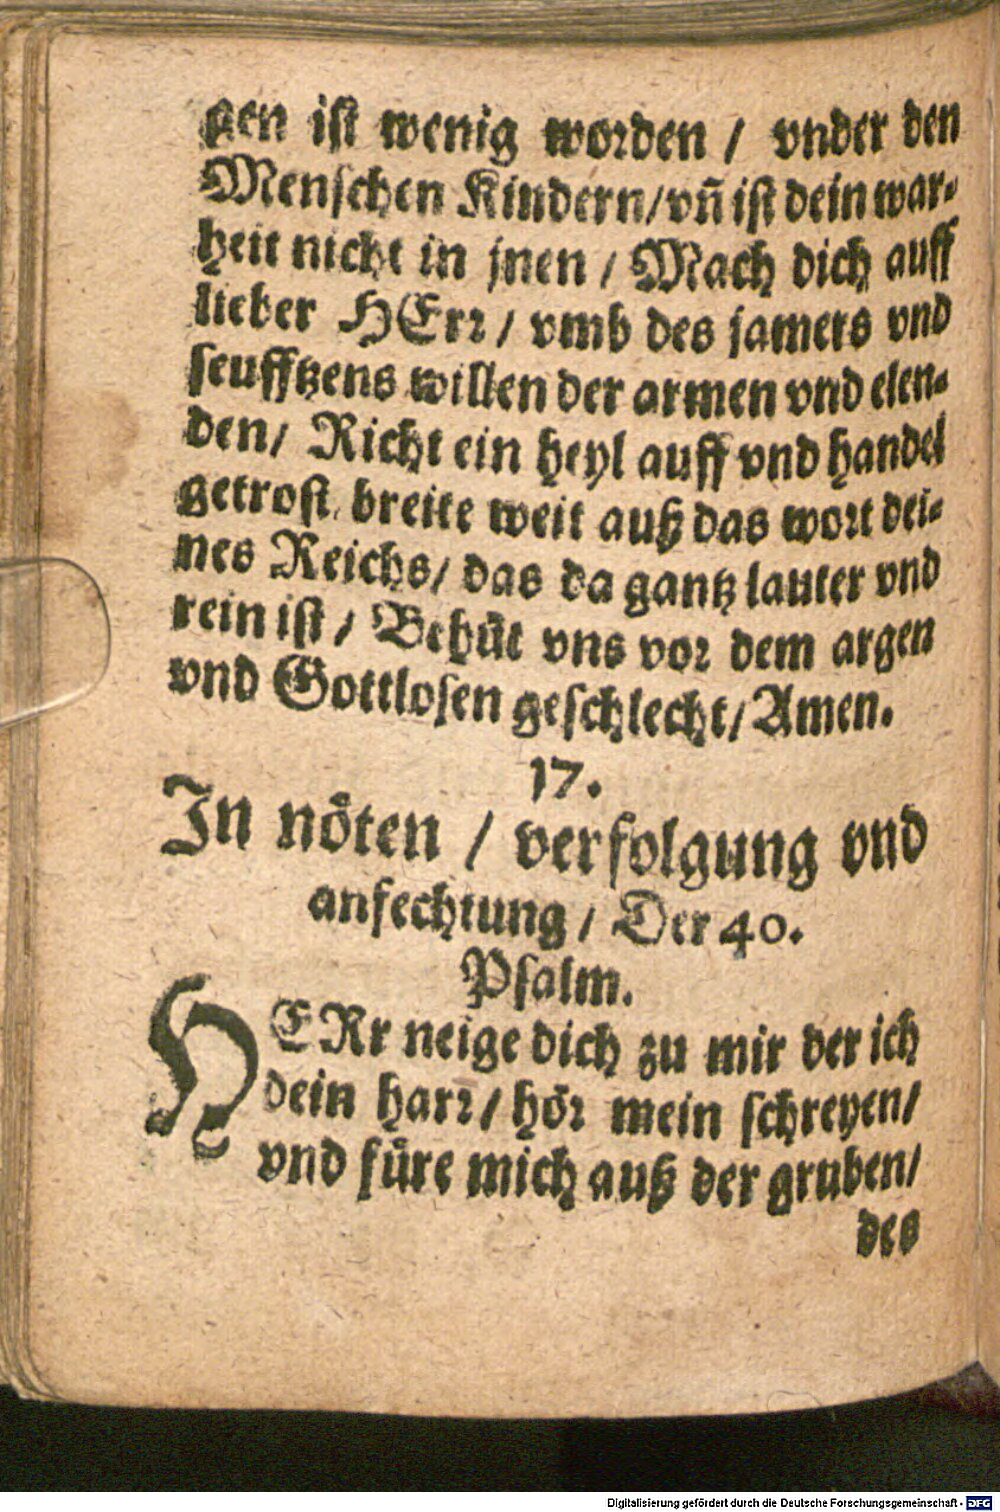 gen ist wenig worden / vnder den
Menschen Kindern/vñ ist dein war-
heit nicht in jnen / Mach dich auff
lieber HErr / vmb des jamers vnd
seufftzens willen der armen vnd elen-
den/ Richt ein heyl auff vnd handel
getrost, breite weit auß das wort dei-
nes Reichs/ das da gantz lauter vnd
rein ist / Behuͤt vns vor dem argen
vnd Gottlosen geschlecht/ Amen.
17.
In noͤten / verfolgung vnd
anfechtung / Der 40.
Psalm.
HERr neige dich zu mir der ich
dein harr / hoͤr mein schreyen/
vnd fuͤre mich auß der gruben/
des
Digitalisierung gefördert durch die Deutsche Forschungsgemeinschaft - DFG